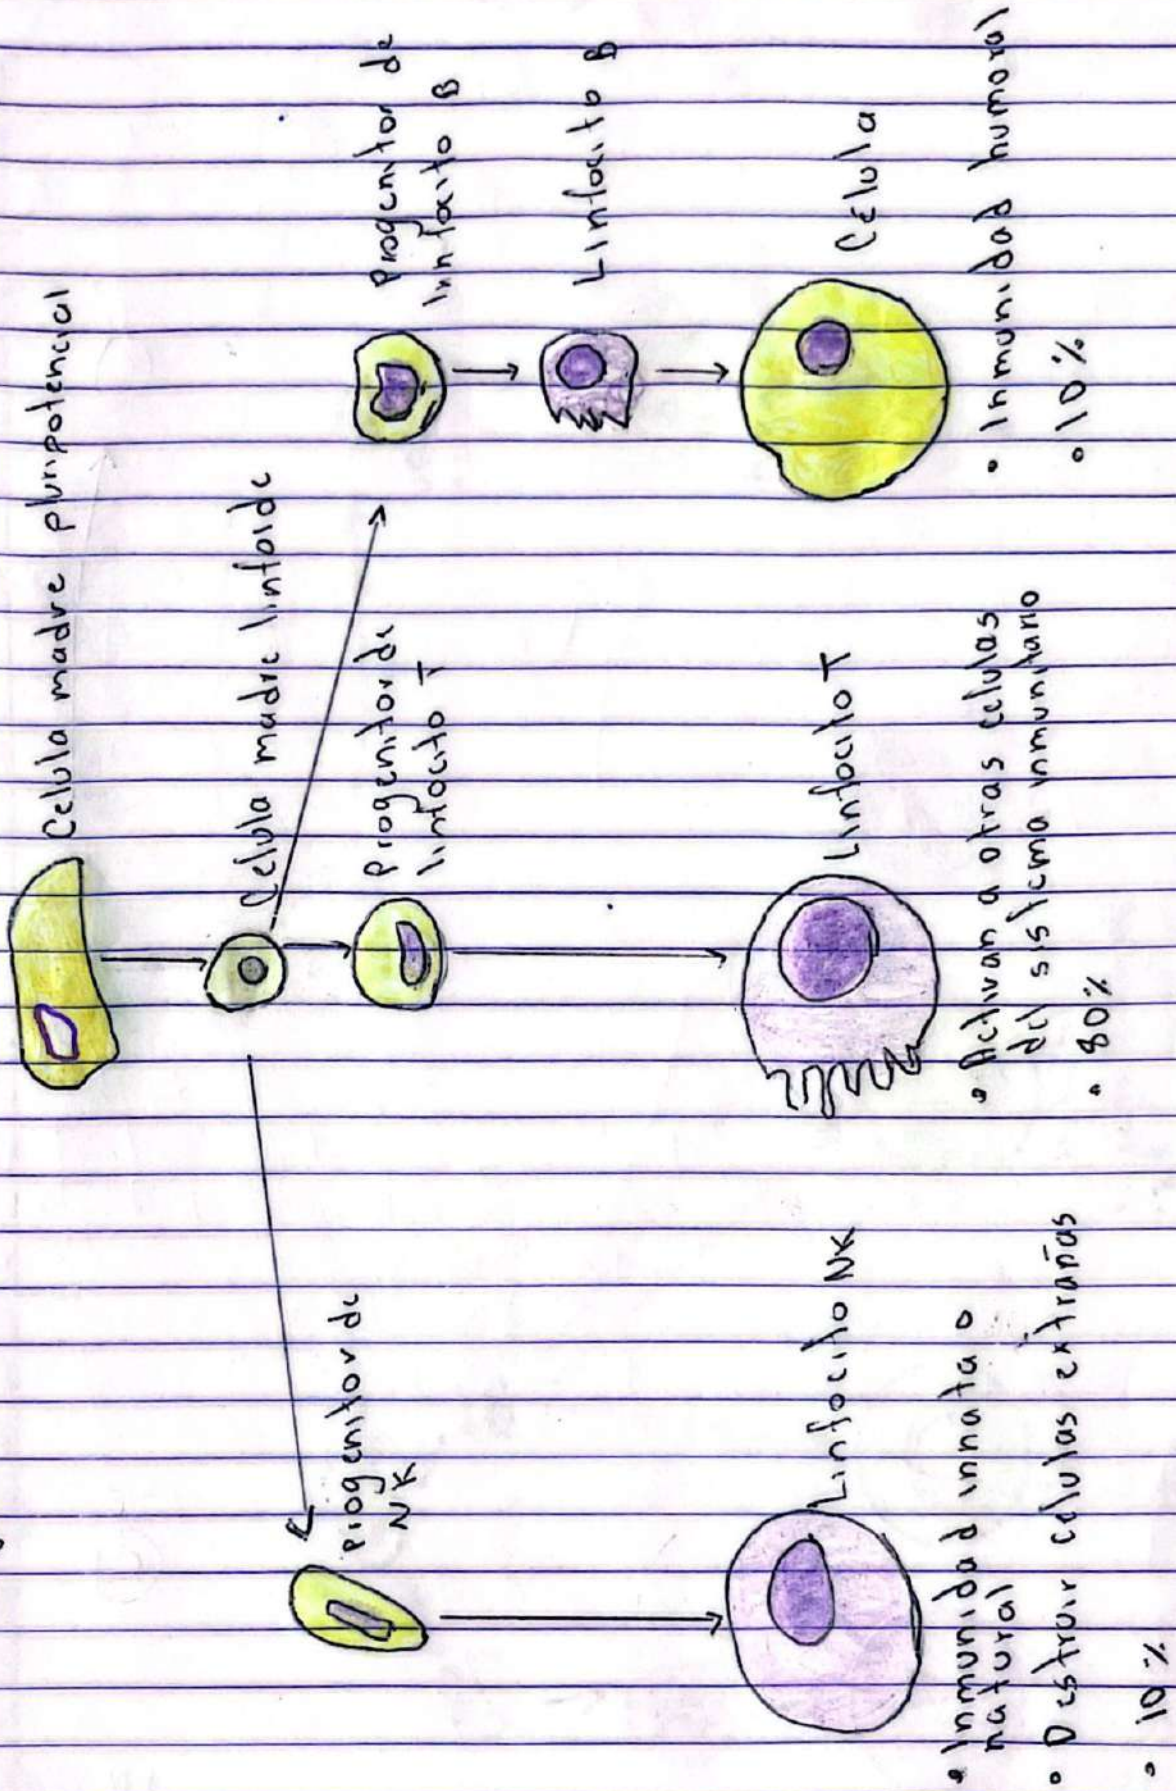 Celula madre pluripotencial
Celula madre linfoide
Progenitor de
NK
Progenitor de
linfocito T
Progenitor de
linfocito B
Linfocito B
Linfocito NK
Linfocito T
Célula
• Inmunidad innata o
natural
• Destruir celulas extrañas
• 10%
• Activan a otras celulas
del sistema inmunitario
• 80%
• Inmunidad humoral
• 10%